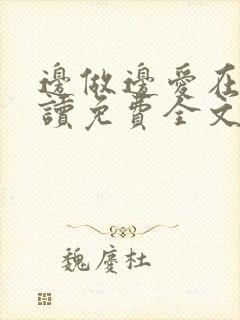 邊做邊愛在
讀免費全文
魏慶杜